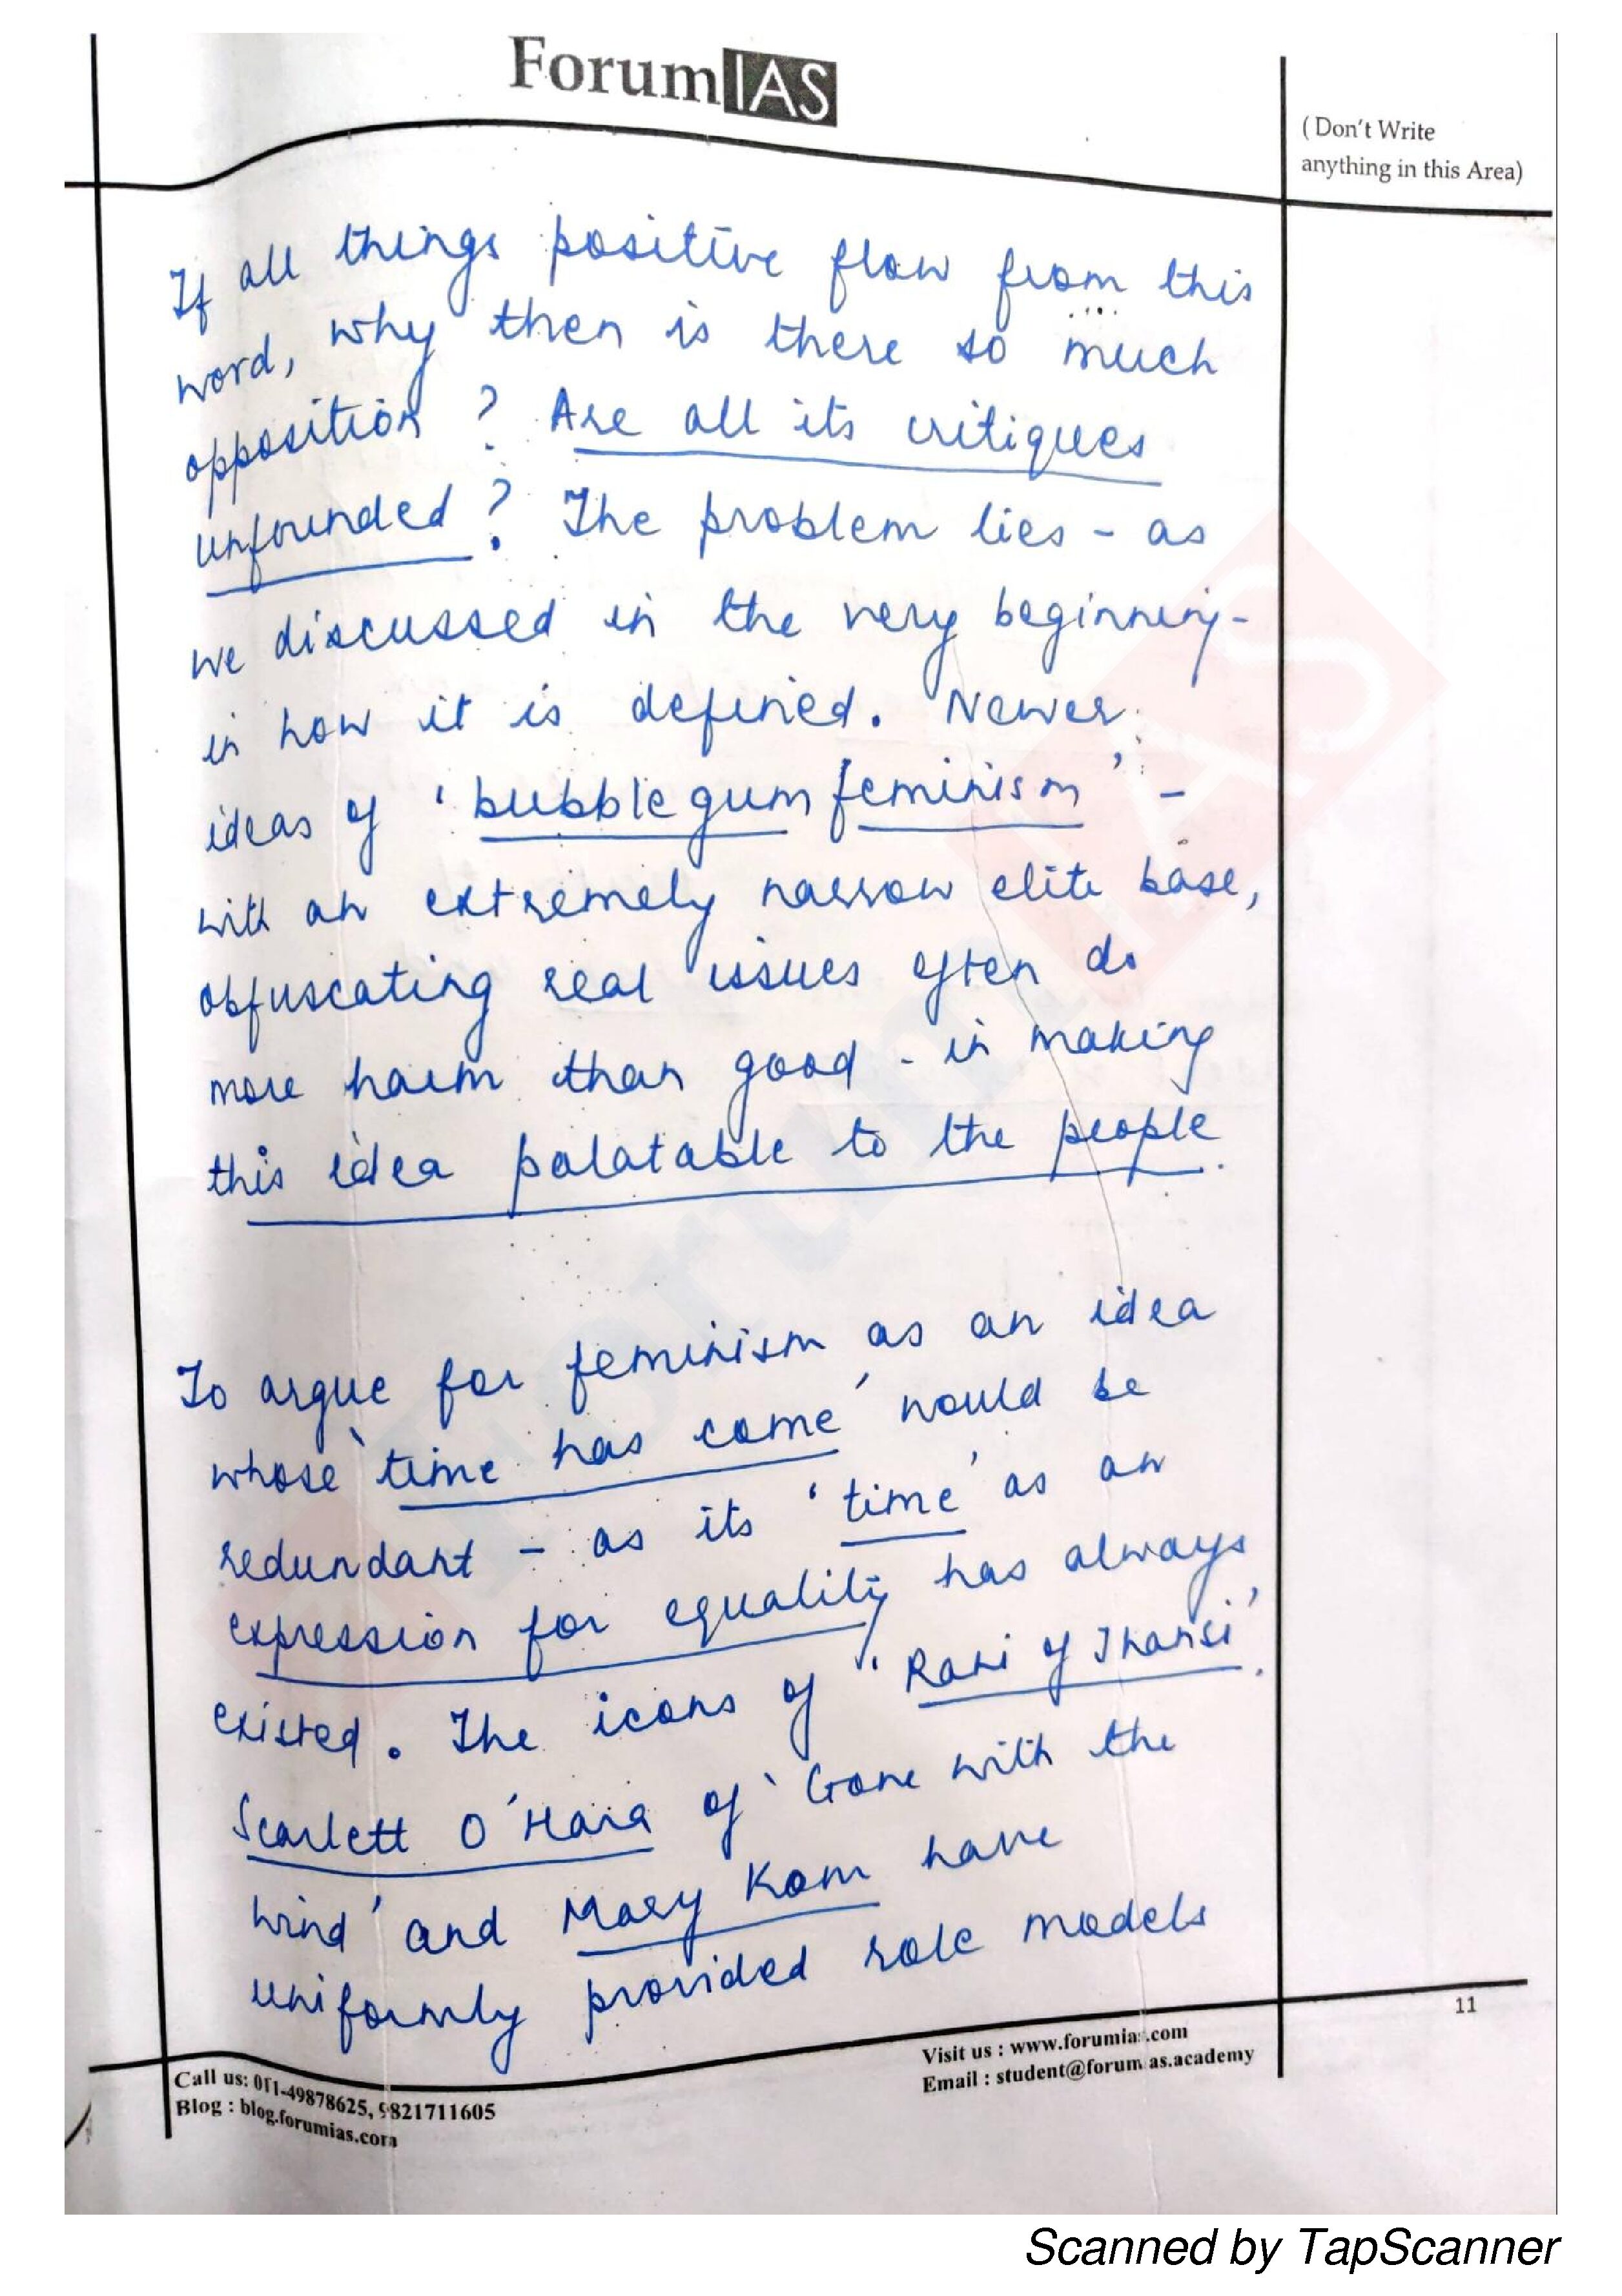 ForumIAS
(Don't Write
anything in this Area)
If all things positive flow from this
word, why then is there so much
opposition? Are all its critiques
unfounded? The problem lies - as
we discussed in the very beginning -
in how it is defined. Newer
ideas of 'bubblegum feminism' -
with an extremely narrow elite base,
obfuscating real issues often do
more harm than good - in making
this idea palatable to the people.
To argue for feminism as an idea
whose 'time has come' would be
redundant - as its 'time' as an
expression for equality has always
existed. The icons of 'Rani of Jhansi',
Scarlett O'Hara of 'Gone with the
wind' and Mary Kom have
uniformly provided role models
11
Call us: 011-49878625, 9821711605
Blog : blog.forumias.com
Visit us : www.forumias.com
Email : student@forumias.academy
Scanned by TapScanner